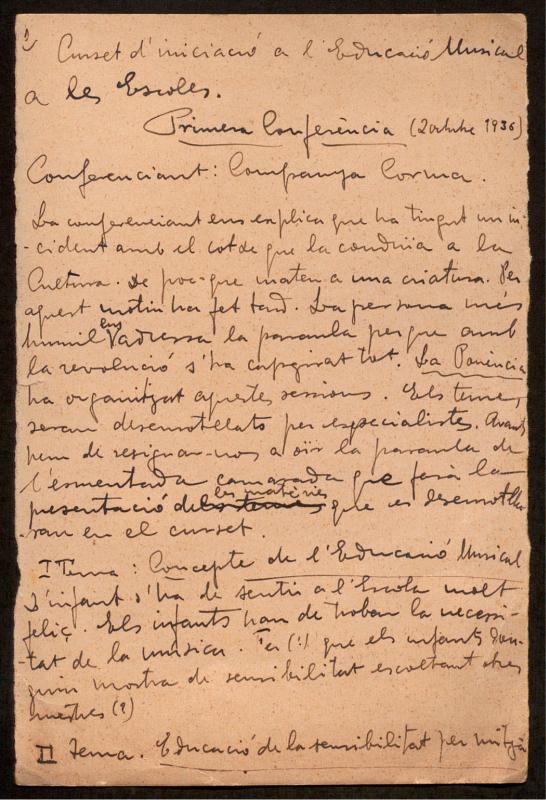 Curset d'iniciació a l'Educació Musical
a les Escoles.
Primera Conferència (2 octubre 1936)
Conferenciant: Companya Corma.
La conferenciant ens explica que ha tingut un in-
-cident amb el cotxe que la conduïa a la
Cultura. De poc que maten a una criatura. Per
aquest motiu ha fet tard. La persona més
humil ens adressa la paraula perque amb
la revolució s'ha capgirat tot. La Ponència
ha organitzat aquestes sessions. Els temes
seran desenrotllats per especialistes. Avui
hem de resignar-nos a oïr la paraula de
l'esmentada camarada que farà la
presentació de les matèries que es desenrotlla-
ran en el curset.
I Tema: Concepte de l'Educació Musical
L'infant s'ha de sentir a l'Escola molt
feliç. Els infants han de trobar la necessi-
-tat de la música. Fer (!) que els infants don-
guin mostra de sensibilitat escoltant obres
mestres (?)
II Tema. Educació de la sensibilitat per mitjà